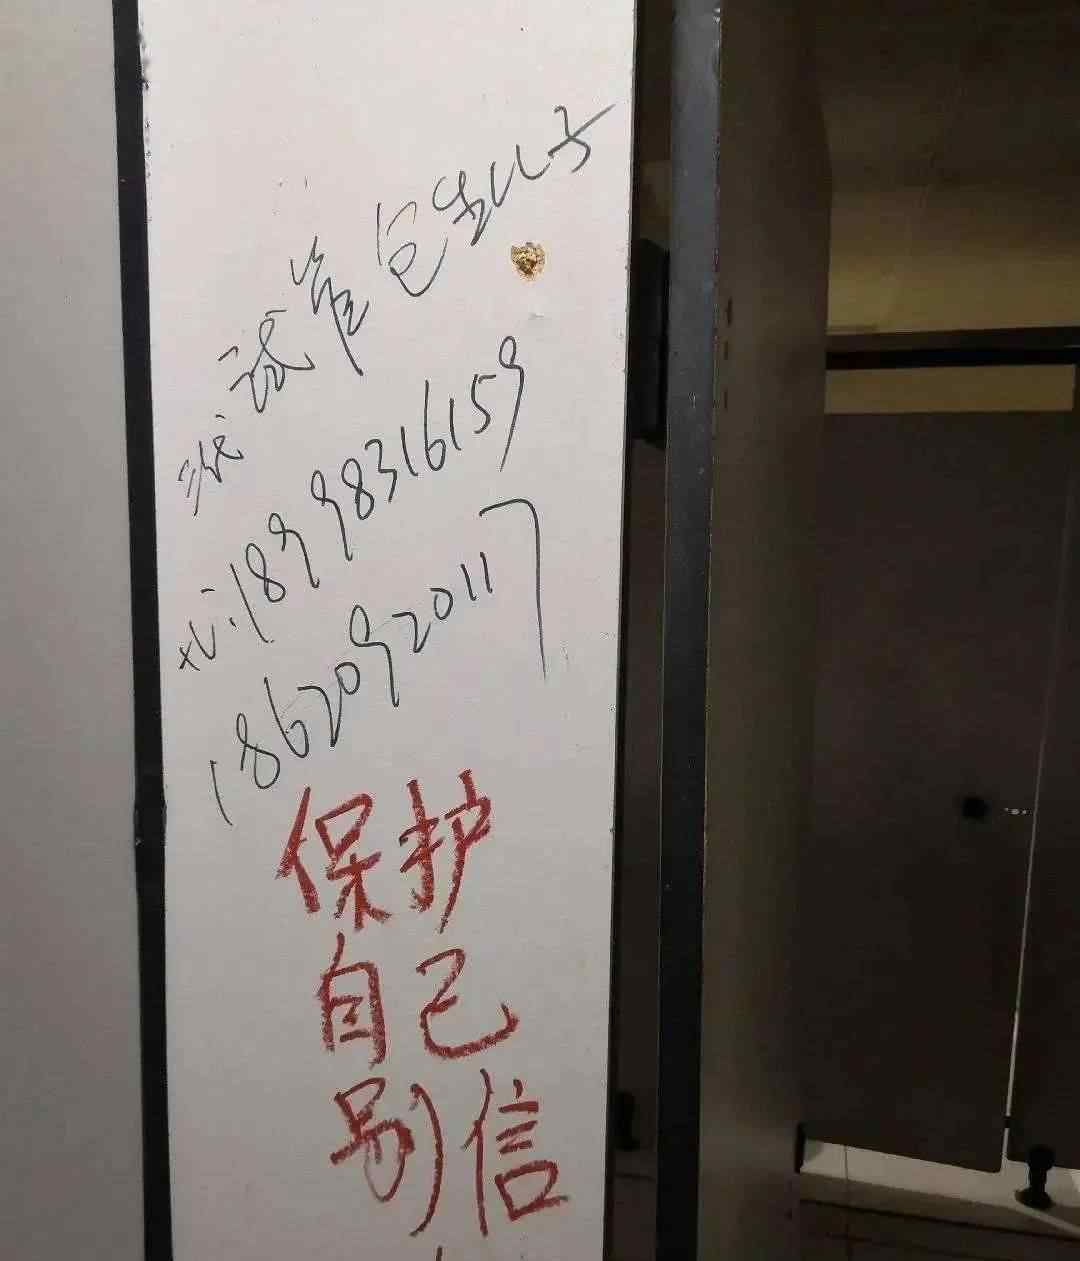 试管包生儿子
18998316159
18620920117
保护
自己
别信